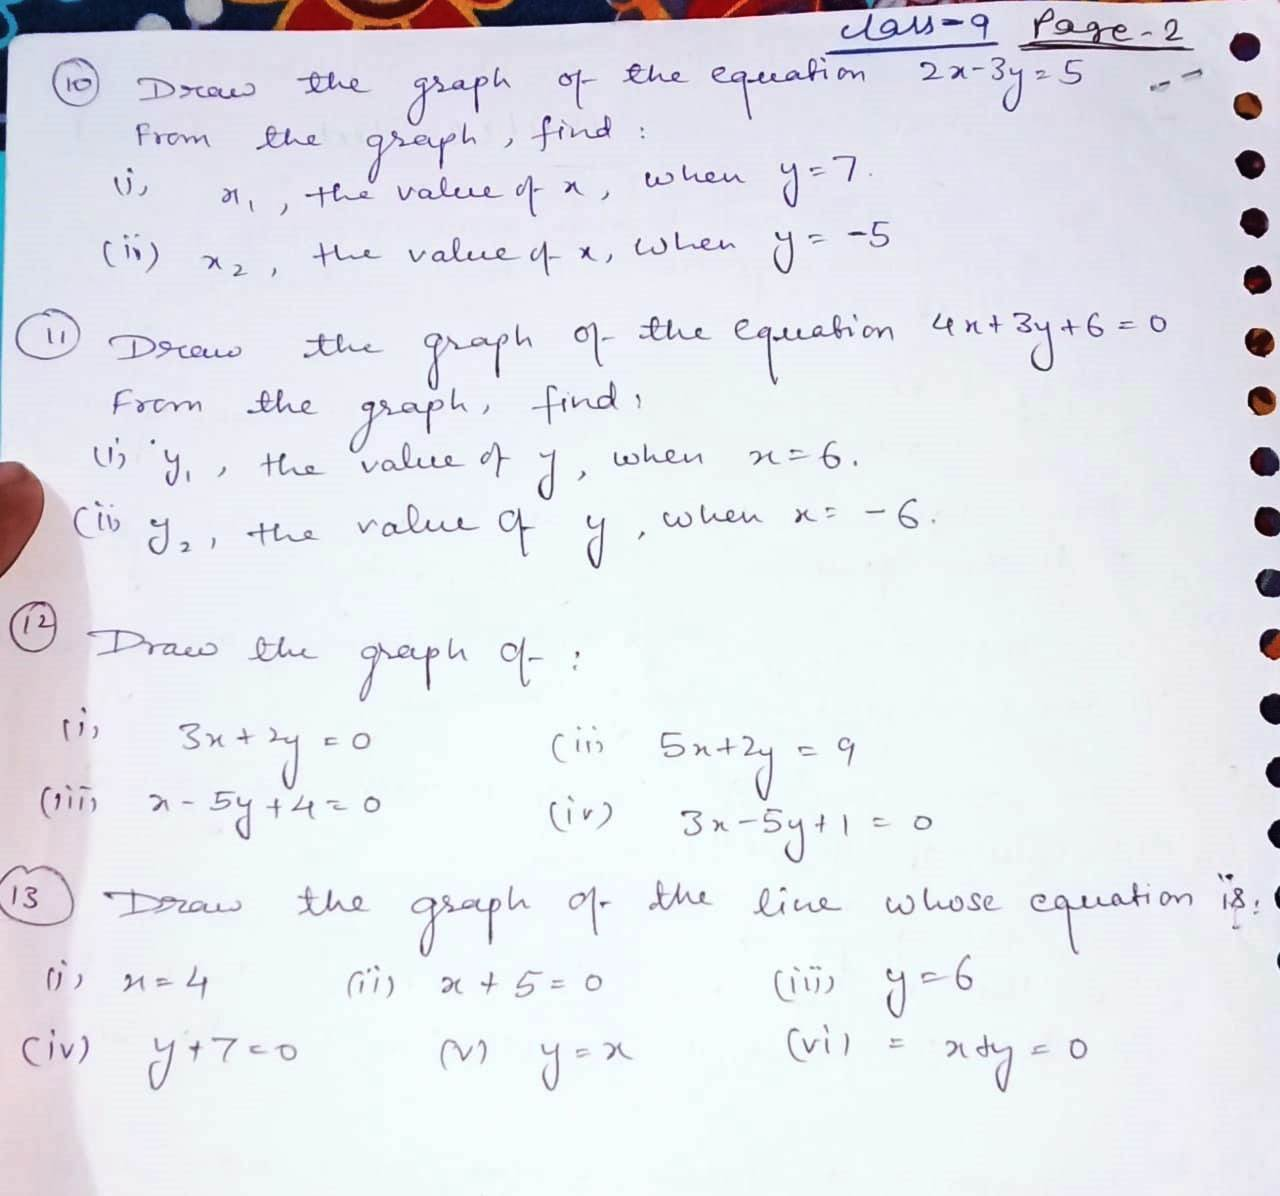 class-9 Page-2
(10) Draw the graph of the equation 2x-3y=5
From the graph, find :
(i) x₁, the value of x, when y=7.
(ii) x₂, the value of x, when y=-5
(11) Draw the graph of the equation 4x+3y+6=0
From the graph, find,
(i) y₁, the value of y, when x=6.
(ii) y₂, the value of y, when x=-6.
(12) Draw the graph of :
(i) 3x+2y=0 (ii) 5x+2y=9
(iii) x-5y+4=0 (iv) 3x-5y+1=0
(13) Draw the graph of the line whose equation is:
(i) x=4 (ii) x+5=0 (iii) y=6
(iv) y+7=0 (v) y=x (vi) = x+y=0